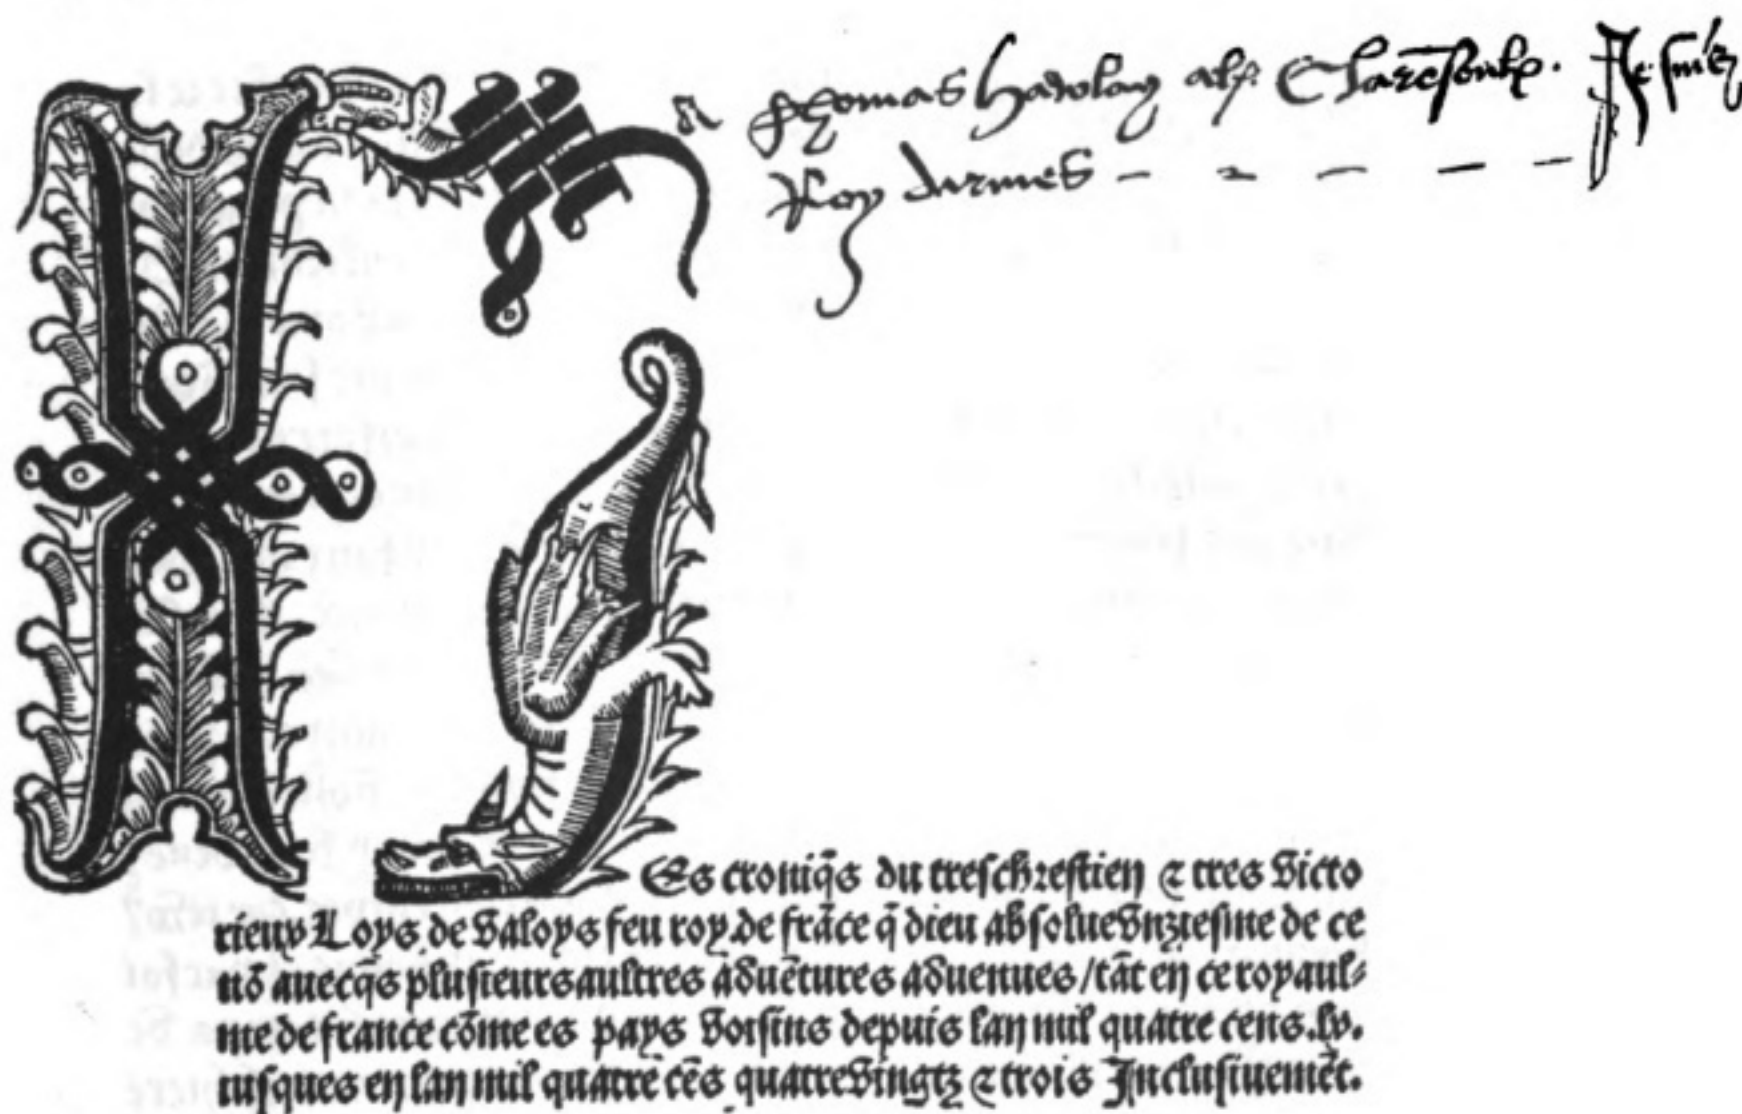 Thomas Hawley
Roy darmes - - - - -
L
Es croniq̃s du treschrestien ⁊ tres victo
rieux Loys de valoys feu roy de frãce q̃ dieu absolue vnziesme de ce
nõ auecq̃s plusieurs aultres aduẽtures aduenues / tãt en ce royaul⸗
me de france cõme es pays voisins depuis lan mil quatre cens.lx.
iusques en lan mil quatre cẽs quatrevingtz ⁊ trois Inclusiuemẽt.